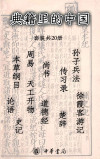 典籍里的中国
套装共20册
孙子兵法
徐霞客游记
传习录
楚辞
尚书
道德经
周易
天工开物
史记
本草纲目
论语
中华书局